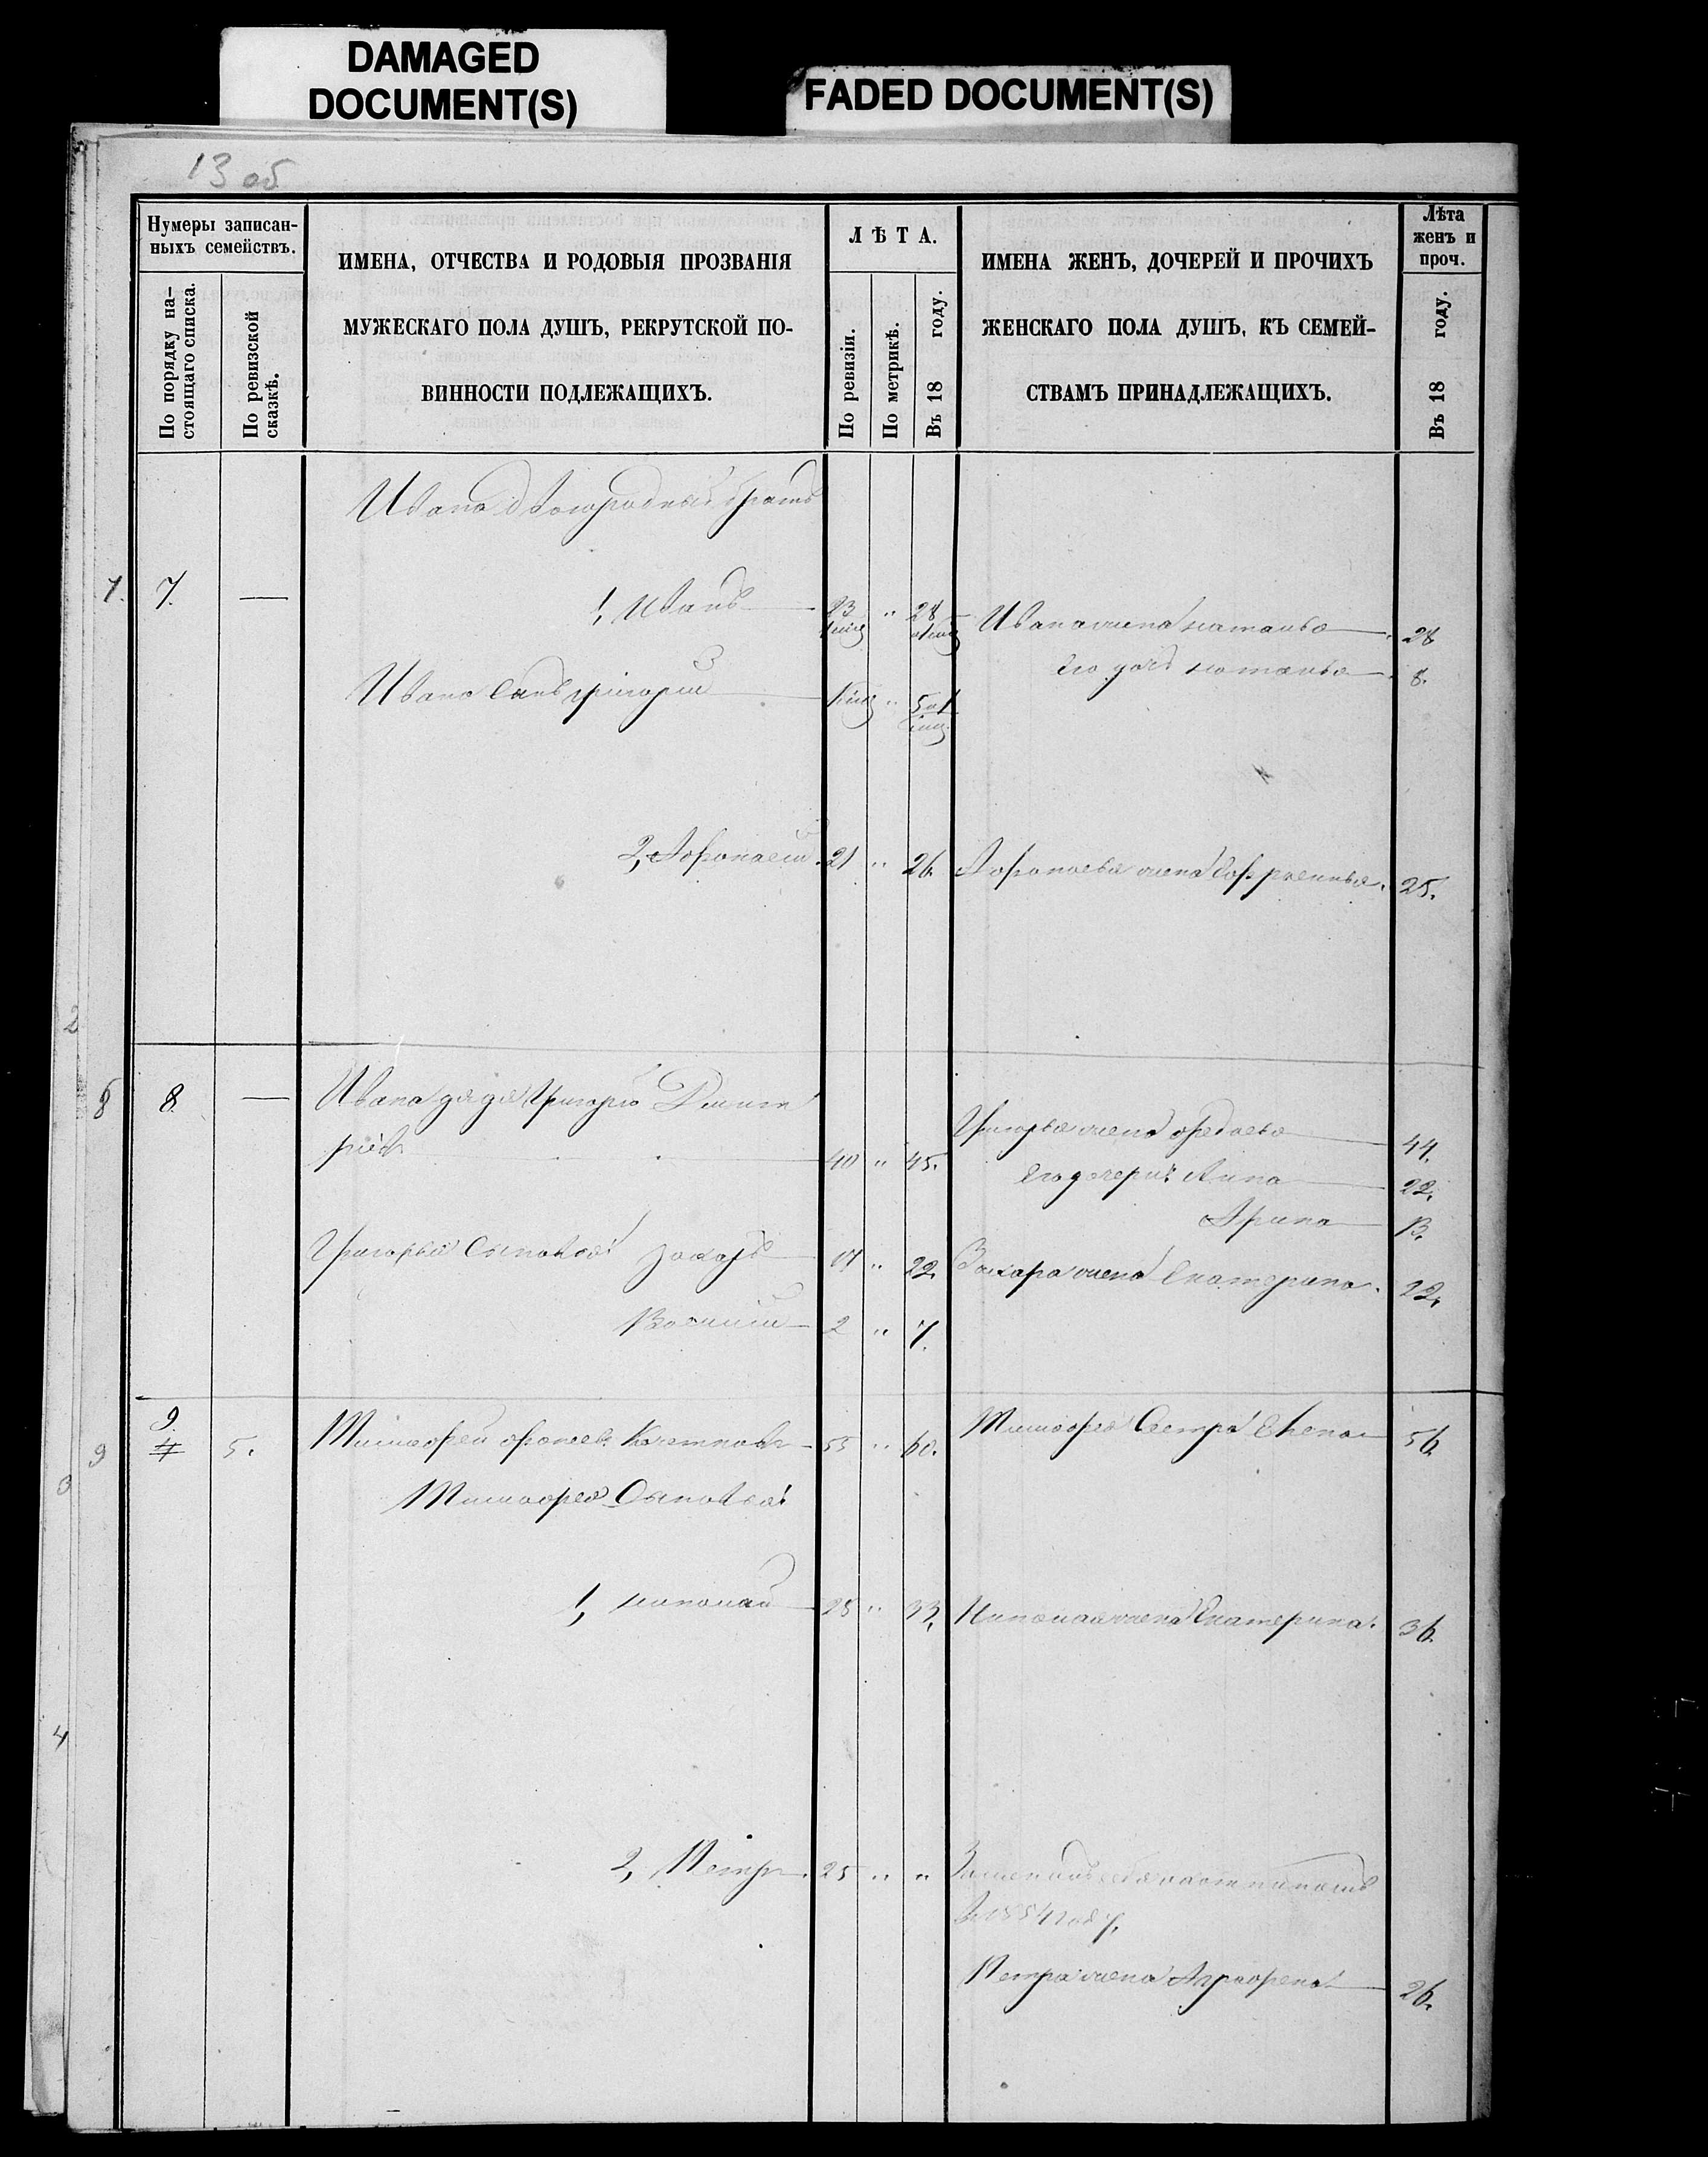 DAMAGED
DOCUMENT(S)
FADED DOCUMENT(S)
13 об
Нумеры записан-
ныхъ семействъ.
По порядку на-
стоящаго списка.
По ревизской
сказкѣ.
ИМЕНА, ОТЧЕСТВА И РОДОВЫЯ ПРОЗВАНІЯ
МУЖЕСКАГО ПОЛА ДУШЪ, РЕКРУТСКОЙ ПО-
ВИННОСТИ ПОДЛЕЖАЩИХЪ.
ЛѢТА.
По ревизіи.
По метрикѣ.
Въ 18 году.
ИМЕНА ЖЕНЪ, ДОЧЕРЕЙ И ПРОЧИХЪ
ЖЕНСКАГО ПОЛА ДУШЪ, КЪ СЕМЕЙ-
СТВАМЪ ПРИНАДЛЕЖАЩИХЪ.
Лѣта
женъ и
проч.
Въ 18 году.
Ивана двоюродный братъ
7. 7. — 1, Иванъ 23 " 28 Ивана жена Наталья 28
его дочь Наталья 8.
Ивана сынъ Григорій " 5
2, Афонасій 21 " 26. Афонасья жена 25.
2
8 8. — Ивана дядя Григорій Дмит
ріев 40 " 45. Григорья жена 44.
его дочери: Анна 22.
Арина 13.
Григорья сыновья: Захаръ 17 " 22. Захара жена Екатерина. 22.
Василій 2 " 7.
9 9. 4 5. Тимофей 55 " 60. Тимофея сестра Елена 56.
3
Тимофея сыновья:
1, Николай 28 " 33, Николая жена Екатерина. 36.
4
2, Петръ. 25 " "
въ 1854 году.
Петра жена Аграфена 26.